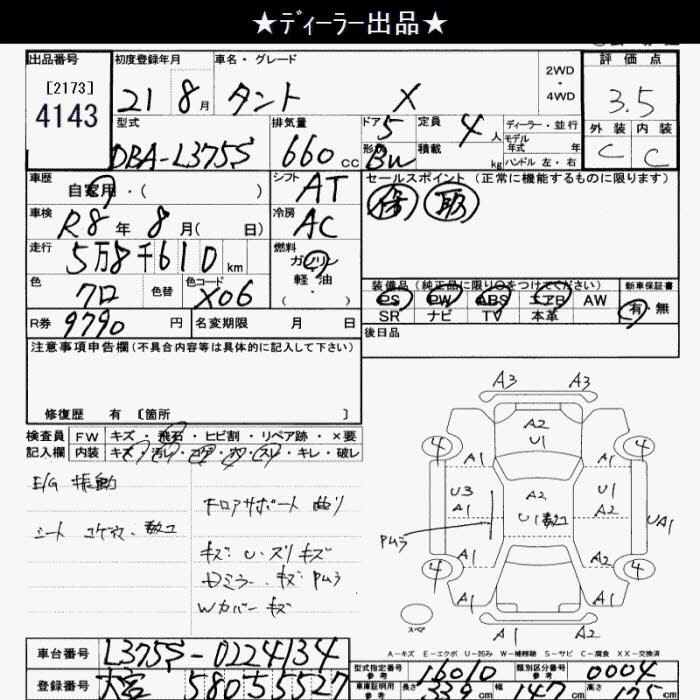 ★ディーラー出品★
出品番号 初度登録年月 車名・グレード 2WD・4WD 評価点
[2173]
4143 21 8月 タント X 3.5
型式 排気量 ドア 5 定員 4人 ディーラー・並行 外装 内装
DBA-L375S 660cc 形状 Bn 積載 kg モデル年式 年 C C
ハンドル 左・右
車歴 シフト セールスポイント (正常に機能するものに限ります)
自家用・( ) AT
車検 R8年 8月( 日) 冷房 AC
走行 5万8千610km 燃料 ガソリン
軽油
( ・ )
色 クロ 色替 色コード X06 装備品 (純正品に限り○をつけてください) 新車保証書
PS PW ABS エアB AW 有・無
SR ナビ TV 本革
R券 9790円 名変期限 月 日 後日品
注意事項申告欄(不具合内容等は具体的に記入して下さい)
修復歴 有 [箇所 ]
検査員 FW キズ・飛石・ヒビ割・リペア跡・×要
記入欄 内装 キズ・汚レ・コゲ・穴・スレ・キレ・破レ
E/G 振動
フロアサポート 曲り
シート コゲ穴・数コ
キズ U・スリキズ
Dミラー・キズ Pムラ
Wカバーキズ
A3 A3
A2
U1
4 A1 A1 4
U3 A2 U1
A1 U1 数コ A2 UA1
Pムラ
4 A1 A2 4
A1 A1
A1 A1
スペア
A-キズ E-エクボ U-凹み W-補修跡 S-サビ C-腐食 XX-交換済
車台番号 L375S-0224134
型式指定番号 参考 16010 類別区分番号 参考 0004
登録番号 大宮 580 55527
車庫証明用 参考 長さ 339cm 幅 147cm 高さ cm